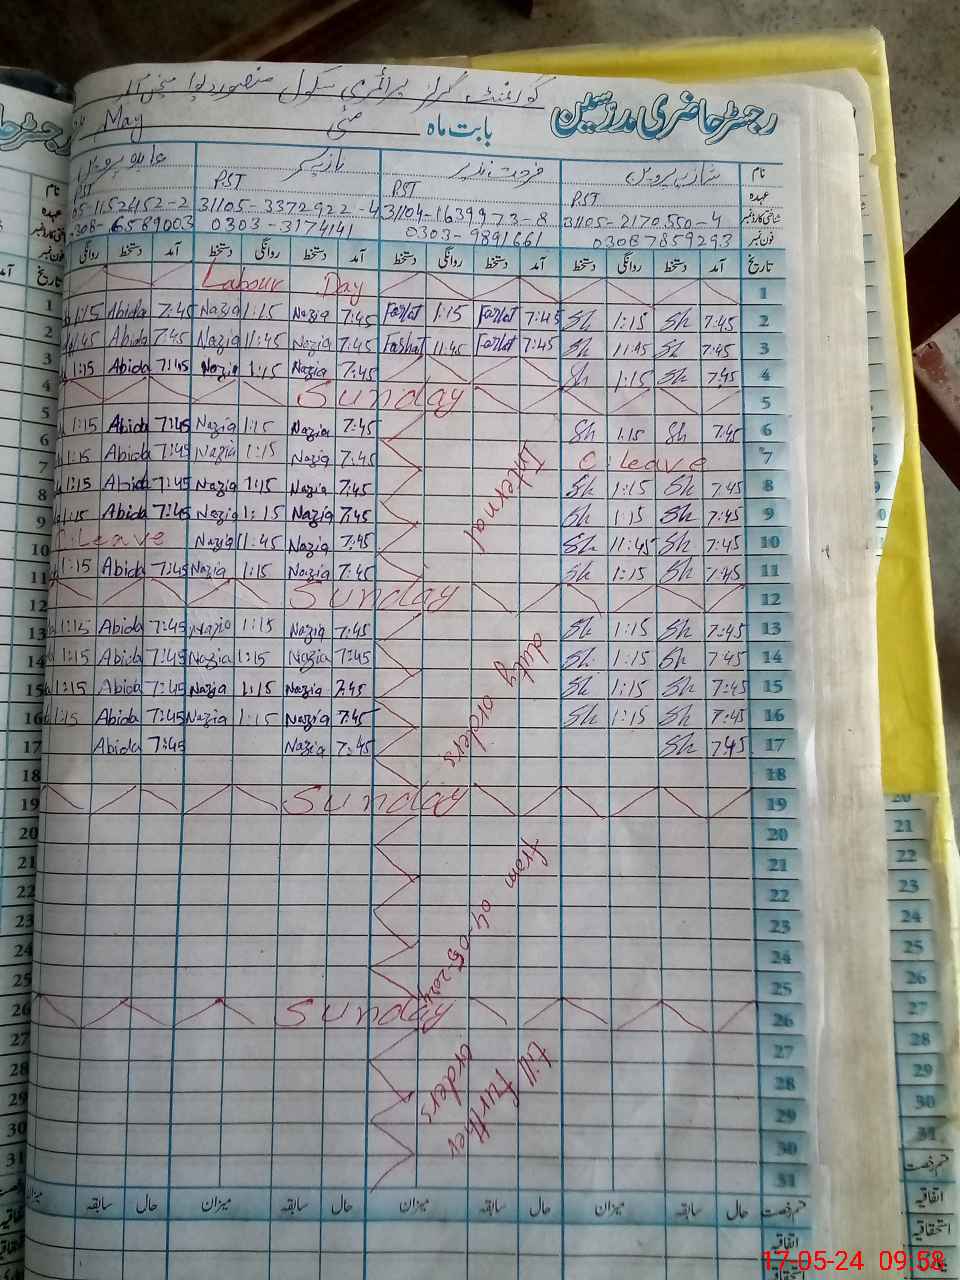 گورنمنٹ گرلز پرائمری سکول منصور
رجسٹر حاضری مدرسین
بابت ماہ مئی May
نام شازیہ پروین فرحت نذیر نازیہ عابدہ پروین
عہدہ PST PST PST PST
شناختی کارڈ نمبر 31105-2170550-4 31104-1639973-8 31105-3372922-4 05-1152452-2
فون نمبر 03087859293 0303-9891661 0303-3174141 0308-6589003
تاریخ آمد دستخط روانگی دستخط آمد دستخط روانگی دستخط آمد دستخط روانگی دستخط آمد دستخط روانگی
1 Labour Day
2 7:45 Sh 1:15 Sh 7:45 Farhat 1:15 Farhat 7:45 Nazia 1:15 Nazia 7:45 Abida 1:15
3 7:45 Sh 11:45 Sh 7:45 Farhat 11:45 Farhat 7:45 Nazia 11:45 Nazia 7:45 Abida 11:45
4 7:45 Sh 1:15 Sh 7:45 Nazia 1:15 Nazia 7:45 Abida 1:15
5 Sunday
6 7:45 Sh 1:15 Sh 7:45 Nazia 1:15 Nazia 7:45 Abida 1:15
7 C. Leave 7:45 Nazia 1:15 Nazia 7:45 Abida 1:15
8 7:45 Sh 1:15 Sh 7:45 Nazia 1:15 Nazia 7:45 Abida 1:15
9 7:45 Sh 1:15 Sh 7:45 Nazia 1:15 Nazia 7:45 Abida 1:15
10 7:45 Sh 11:45 Sh 7:45 Nazia 11:45 Nazia C. Leave
11 7:45 Sh 1:15 Sh 7:45 Nazia 1:15 Nazia 7:45 Abida 1:15
12 Sunday
13 7:45 Sh 1:15 Sh 7:45 Nazia 1:15 Nazia 7:45 Abida 1:15
14 7:45 Sh 1:15 Sh 7:45 Nazia 1:15 Nazia 7:45 Abida 1:15
15 7:45 Sh 1:15 Sh 7:45 Nazia 1:15 Nazia 7:45 Abida 1:15
16 7:45 Sh 1:15 Sh 7:45 Nazia 1:15 Nazia 7:45 Abida 1:15
17 7:45 Sh 7:45 Nazia 7:45 Abida
18
19 Sunday
20
21
22
23
24
25
26 Sunday
27
28
29
30
31
Internal duty orders from 04-05-2024 till further orders
قسم رخصت حال سابقہ میزان حال سابقہ میزان حال سابقہ میزان حال سابقہ میزان
اتفاقیہ
استحقاقیہ
17-05-24 09:58